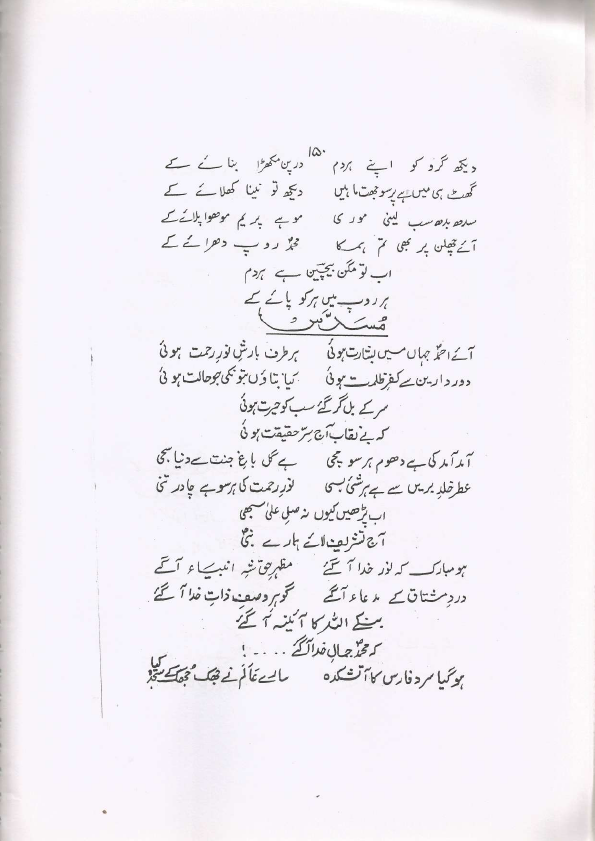 ۱۵۰
دیکھ گرو کو اپنے ہردم درپن مکھڑا بنائے کے
گھٹ ہی میں ہے پر سوجھت ناہیں دیکھ تو نینا کھلائے کے
سدھ بدھ سب لینی موری موہے پریم مدھوا پلائے کے
آئے چھلن پر بھی تم ہمکا محمدؐ روپ دھرائے کے
اب تو مگن بیچین ہے ہردم
ہر روپ میں ہرکو پائے کے
مُسدّس
آئے احمدؐ جہاں میں بشارت ہوئی ہر طرف بارشِ نورِ رحمت ہوئی
دور دارین سے کفر و ظلمت ہوئی کیا بتاؤں بتو نکی جو حالت ہوئی
سر کے بل گر گئے سب کو حیرت ہوئی
کہ بے نقاب آج سِرّ حقیقت ہوئی
آمد آمد کی ہے دھوم ہر سو مچی ہے گل باغِ جنت سے دنیا سجی
عطر خلدِ بریں سے ہے ہر شئی بسی نورِ رحمت کی ہر سو ہے چادر تنی
اب پڑھیں کیوں نہ صلِ علیٰ سبھی
آج تشریف لائے ہمارے نبیؐ
ہو مبارک کہ نورِ خدا آ گئے مظہرِ حق شہِ انبیاء آ گئے
دردِ مشتاق کے مدعاء آ گئے گوہرِ وصفِ ذاتِ خدا آ گئے
بنکے اللہ کا آئینہ آ گئے
کہ محمدؐ جمالِ خدا آ گئے ....!
ہو گیا سرد فارس کا آتشکدہ سارے عَالَم نے جھک جھک کے سجدہ کیا